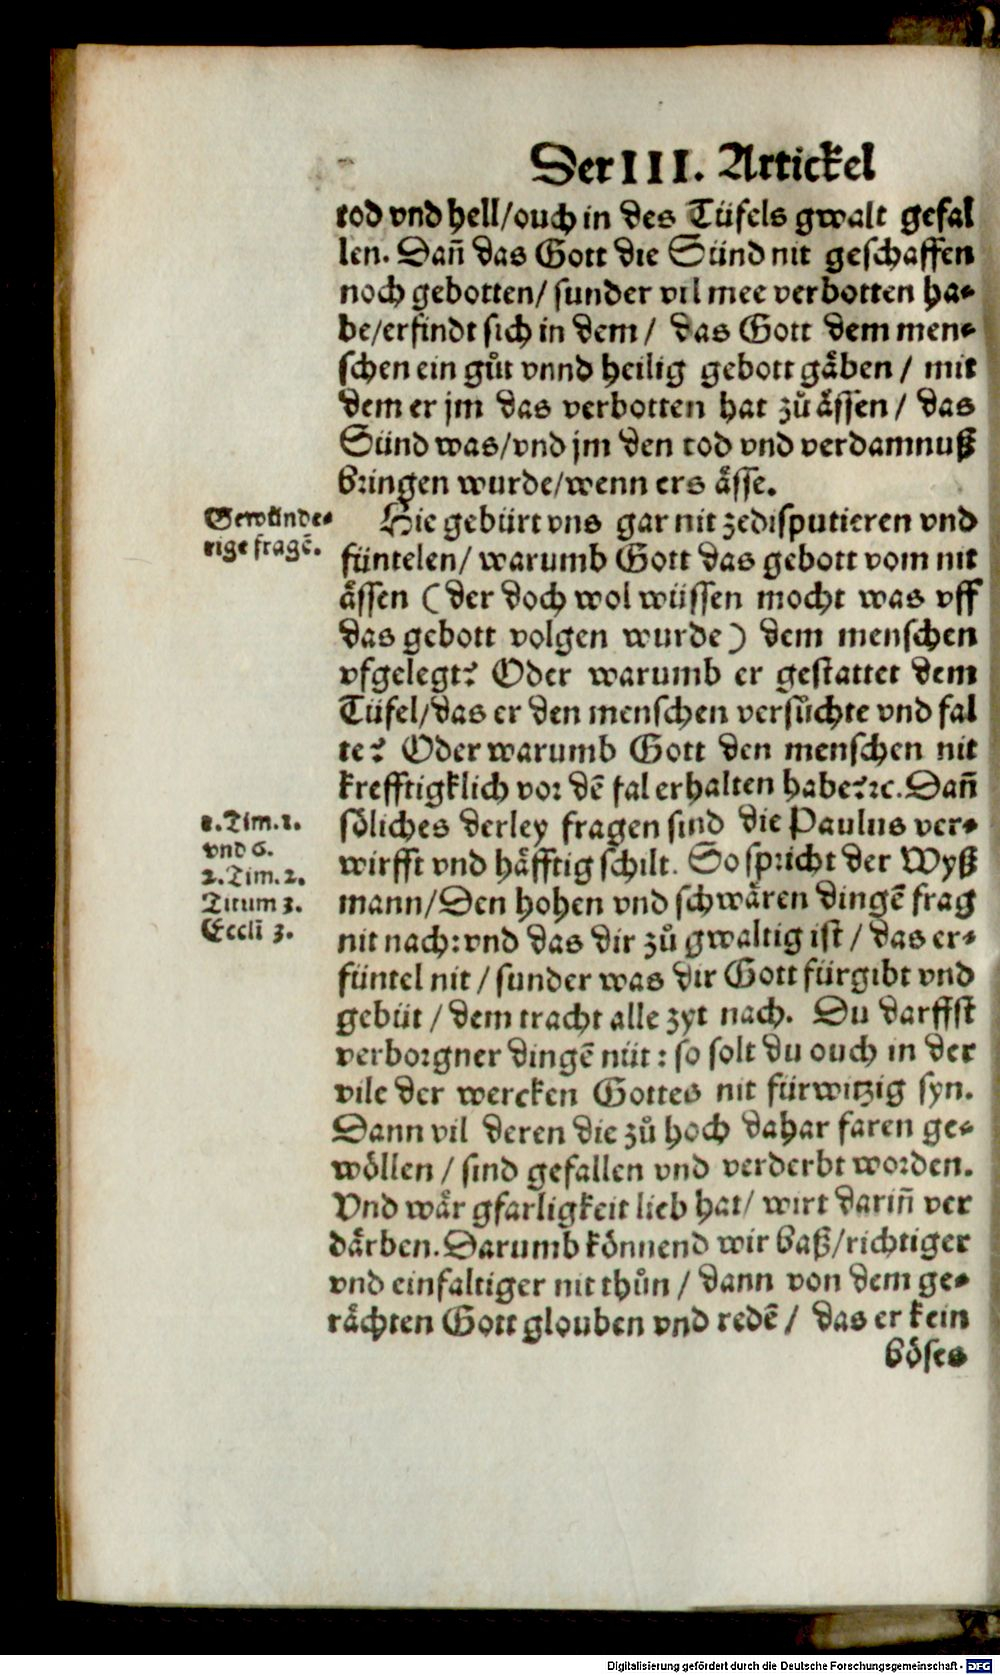 Der III. Artickel
tod vnd hell/ouch in des Tüfels gwalt gefal
len. Dañ das Gott die Sünd nit geschaffen
noch gebotten/ sunder vil mee verbotten ha-
be/erfindt sich in dem/ das Gott dem men-
schen ein gůt vnnd heilig gebott gäben / mit
dem er jm das verbotten hat zů ässen / das
Sünd was/vnd jm den tod vnd verdamnuß
bringen wurde/wenn ers ässe.
Hie gebürt vns gar nit zedisputieren vnd
füntelen/ warumb Gott das gebott vom nit
ässen (der doch wol wüssen mocht was vff
das gebott volgen wurde) dem menschen
vfgelegt? Oder warumb er gestattet dem
Tüfel/das er den menschen versůchte vnd fal
te? Oder warumb Gott den menschen nit
krefftigklich vor dē fal erhalten habe?ꝛc. Dañ
söliches derley fragen sind die Paulus ver-
wirfft vnd häfftig schilt. So spricht der Wyß
mann/Den hohen vnd schwären dingē frag
nit nach:vnd das dir zů gwaltig ist / das er-
füntel nit / sunder was dir Gott fürgibt vnd
gebüt / dem tracht alle zyt nach. Du darffst
verborgner dingē nüt: so solt du ouch in der
vile der wercken Gottes nit fürwitzig syn.
Dann vil deren die zů hoch dahar faren ge-
wöllen / sind gefallen vnd verderbt worden.
Vnd wär gfarligkeit lieb hat/ wirt dariñ ver
därben. Darumb könnend wir baß/richtiger
vnd einfaltiger nit thůn / dann von dem ge-
rächten Gott glouben vnd redē / das er kein
böses
rige fragē.
1. Tim. 1.
vnd 6.
2. Tim. 2.
Titum 3.
Eccli 3.
Digitalisierung gefördert durch die Deutsche Forschungsgemeinschaft - DFG